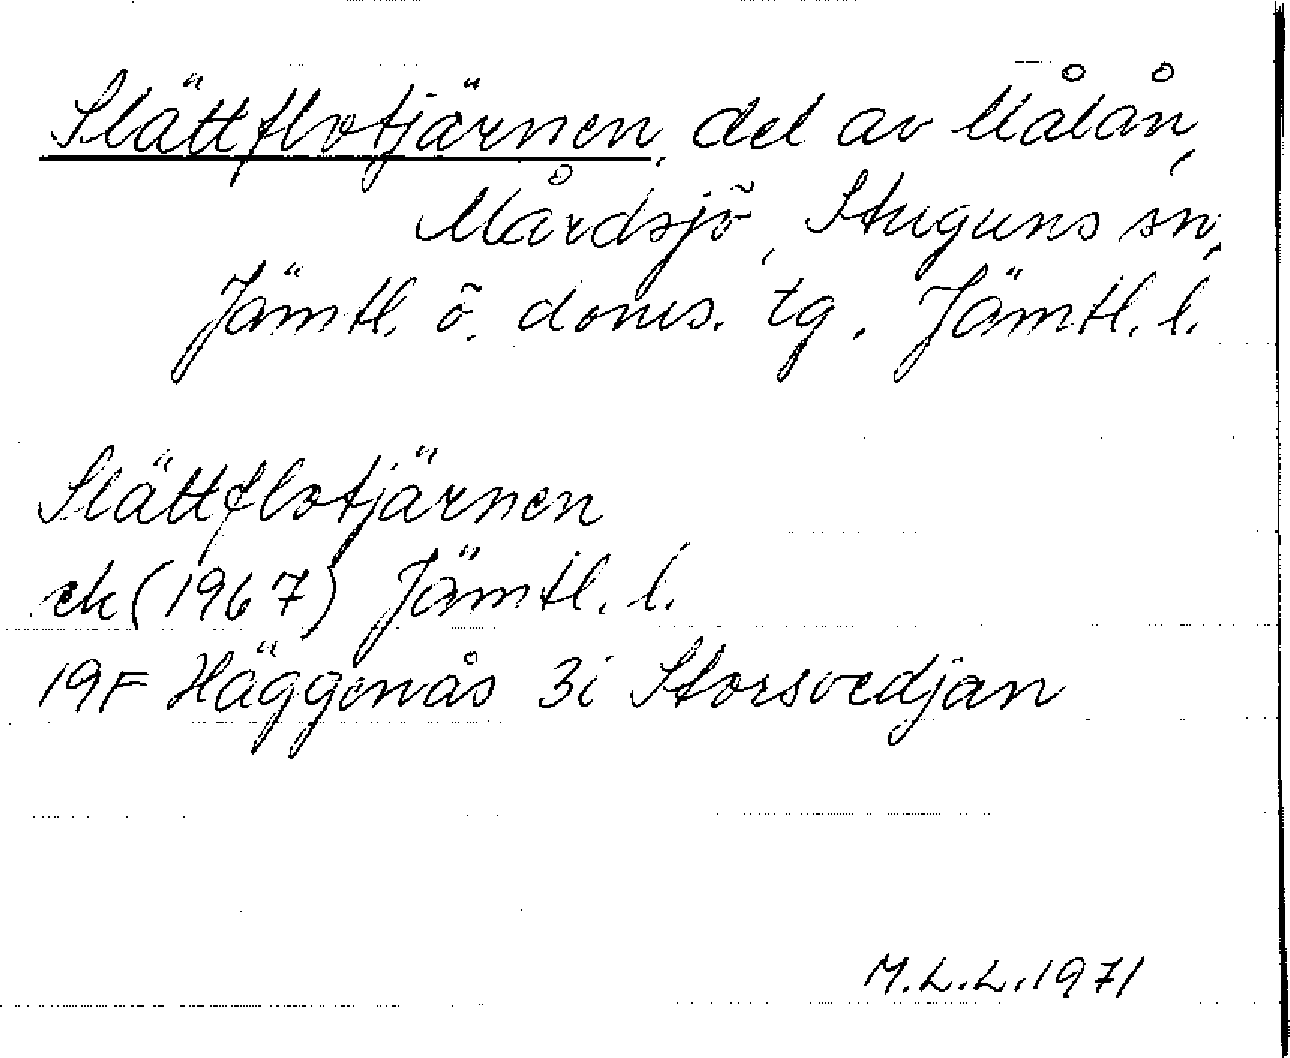 Slättflotjärnen, del av Målån,
Mårdsjö, Stuguns sn,
Jämtl. ö. doms. tg. Jämtl. l.
Slättflotjärnen
ek (1967) Jämtl. l.
19F Häggenås 3i Storsvedjan
M.L.L. 1971